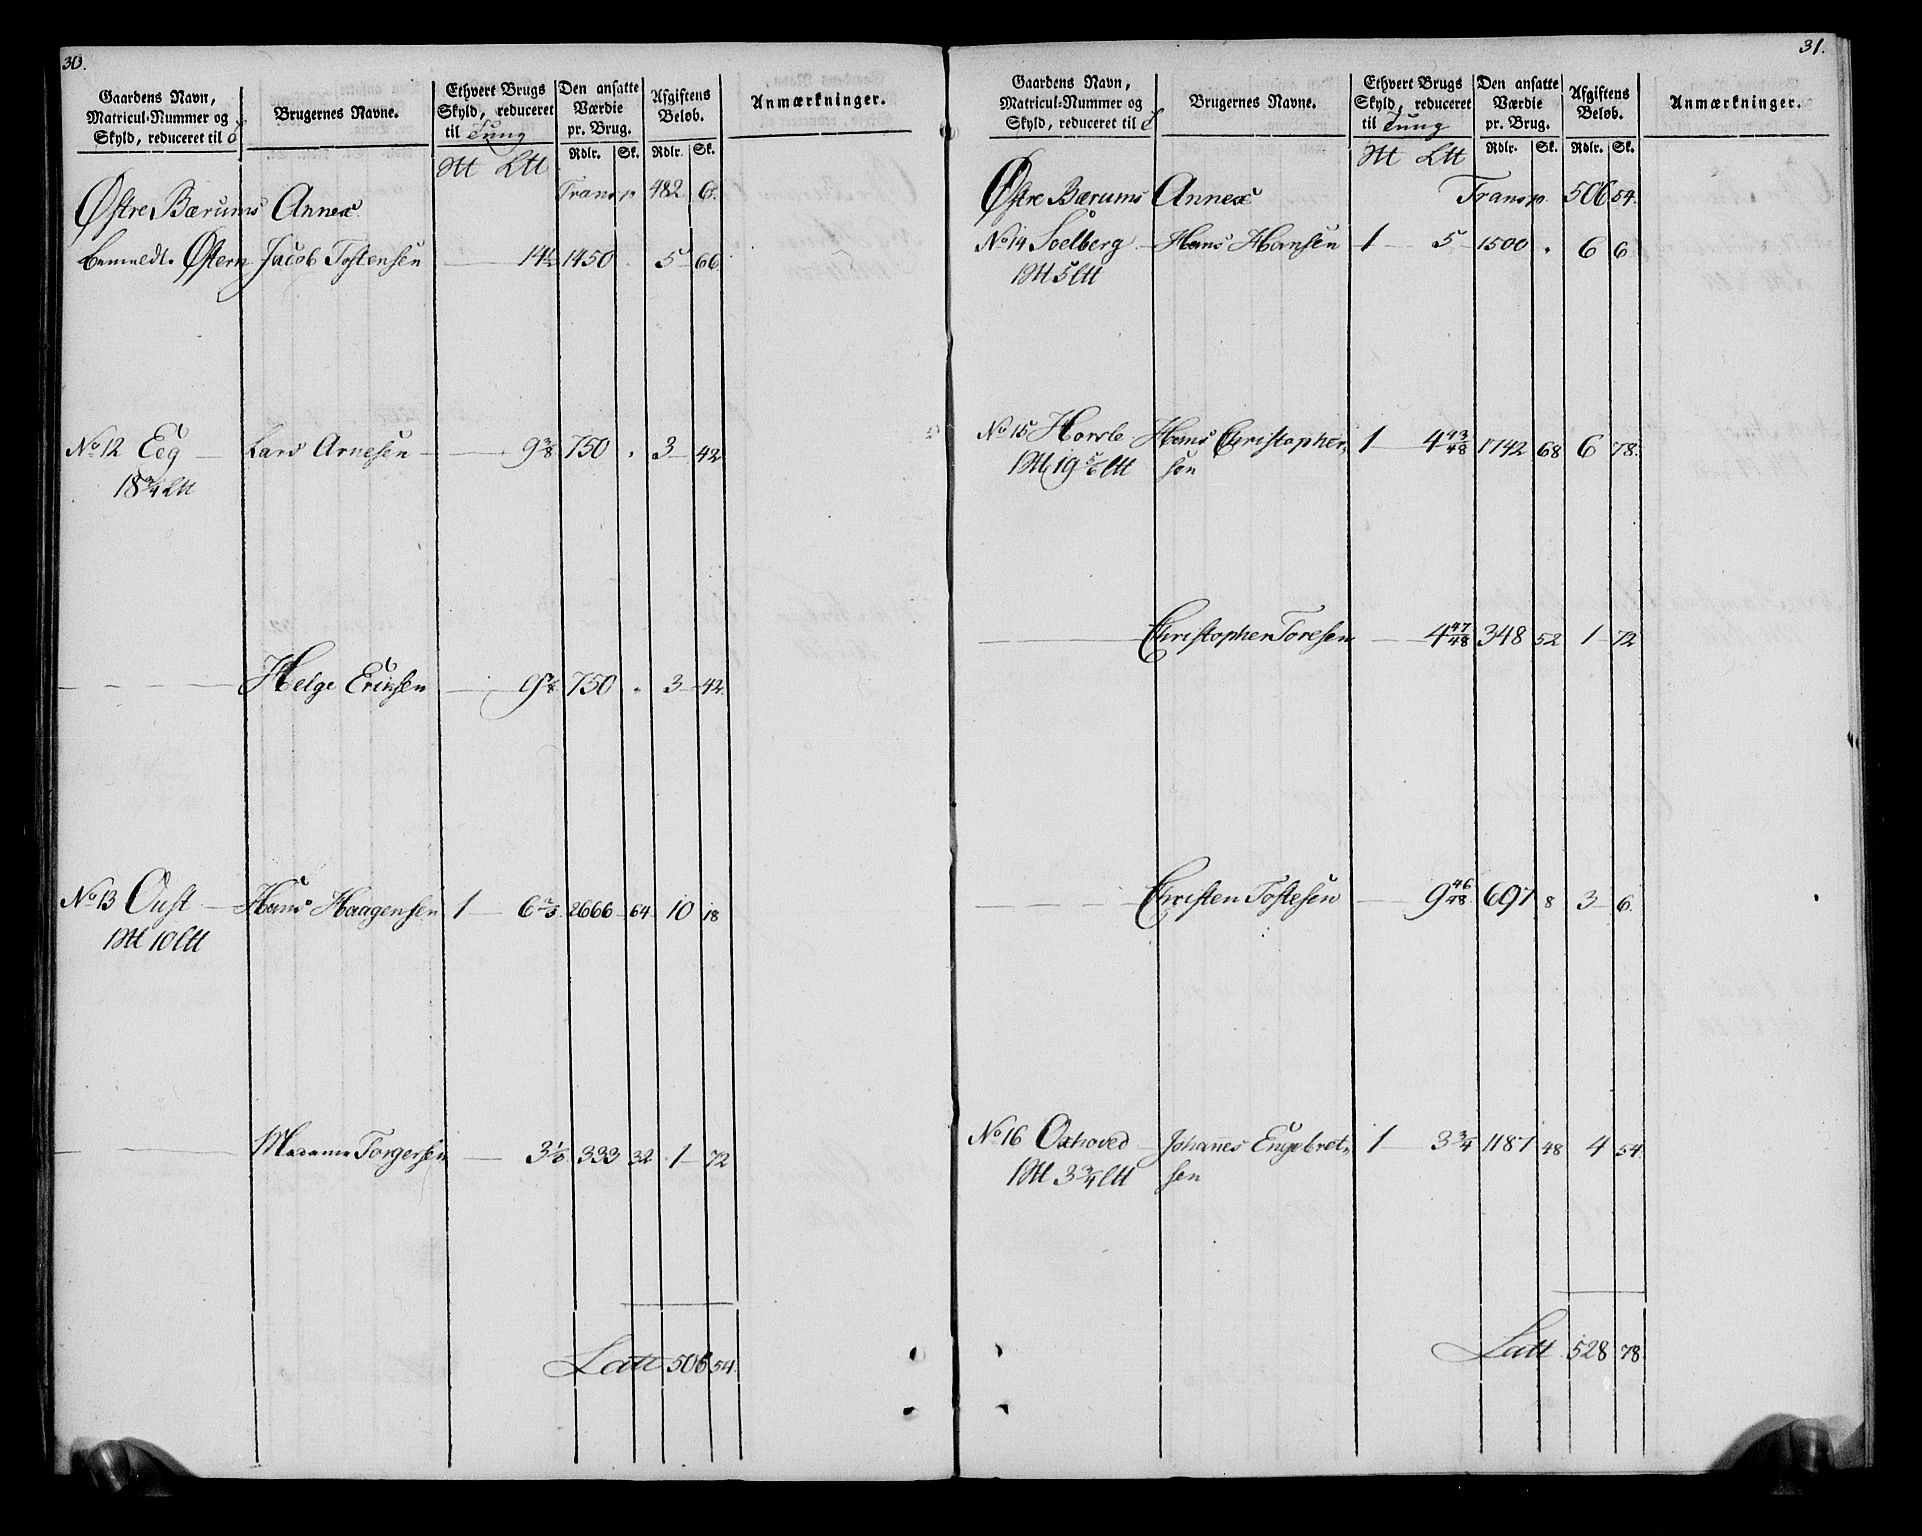 30.
Gaardens Navn, Matricul-Nummer og Skyld, reduceret til
Brugernes Navne.
Ethvert Brugs Skyld, reduceret til Tung
Den ansatte Værdie pr. Brug.
Afgiftens Beløb.
Anmærkninger.
Rdlr. Sk. Rdlr. Sk.
Østre Bærums Annex Transp 482 6.
Østern Jacob Tostensen 14½ 1450 . 5 66
No 12 Eeg Lars Arnesen 9⅜ 750 . 3 42
18¾ Ltt
Helge Ericksen 9⅜ 750 . 3 42
No 13 Oust Hans Haagensen 1 6⅔ 2666 64 10 18
1 10 Ltt
Madame Torgersen 3⅓ 333 32 1 72
Latt 506 54
31.
Gaardens Navn, Matricul-Nummer og Skyld, reduceret til
Brugernes Navne.
Ethvert Brugs Skyld, reduceret til Tung
Den ansatte Værdie pr. Brug.
Afgiftens Beløb.
Anmærkninger.
Rdlr. Sk. Rdlr. Sk.
Østre Bærums Annex Transp. 506 54.
No 14 Soelberg Hans Hansen 1 5 1500 . 6 6
1 5 Ltt
No 15 Horsle Hans Christopher- 1 4 43/48 1742 68 6 78.
1 19⅚ Ltt sen
Christopher Toresen 4 47/48 348 52 1 72
Christen Tostesen 9 46/48 697 8 3 6.
No 16 Oxhoved Johanes Engebret- 1 3¾ 1187 48 4 54.
1 3¾ Ltt sen
Latt 528 78